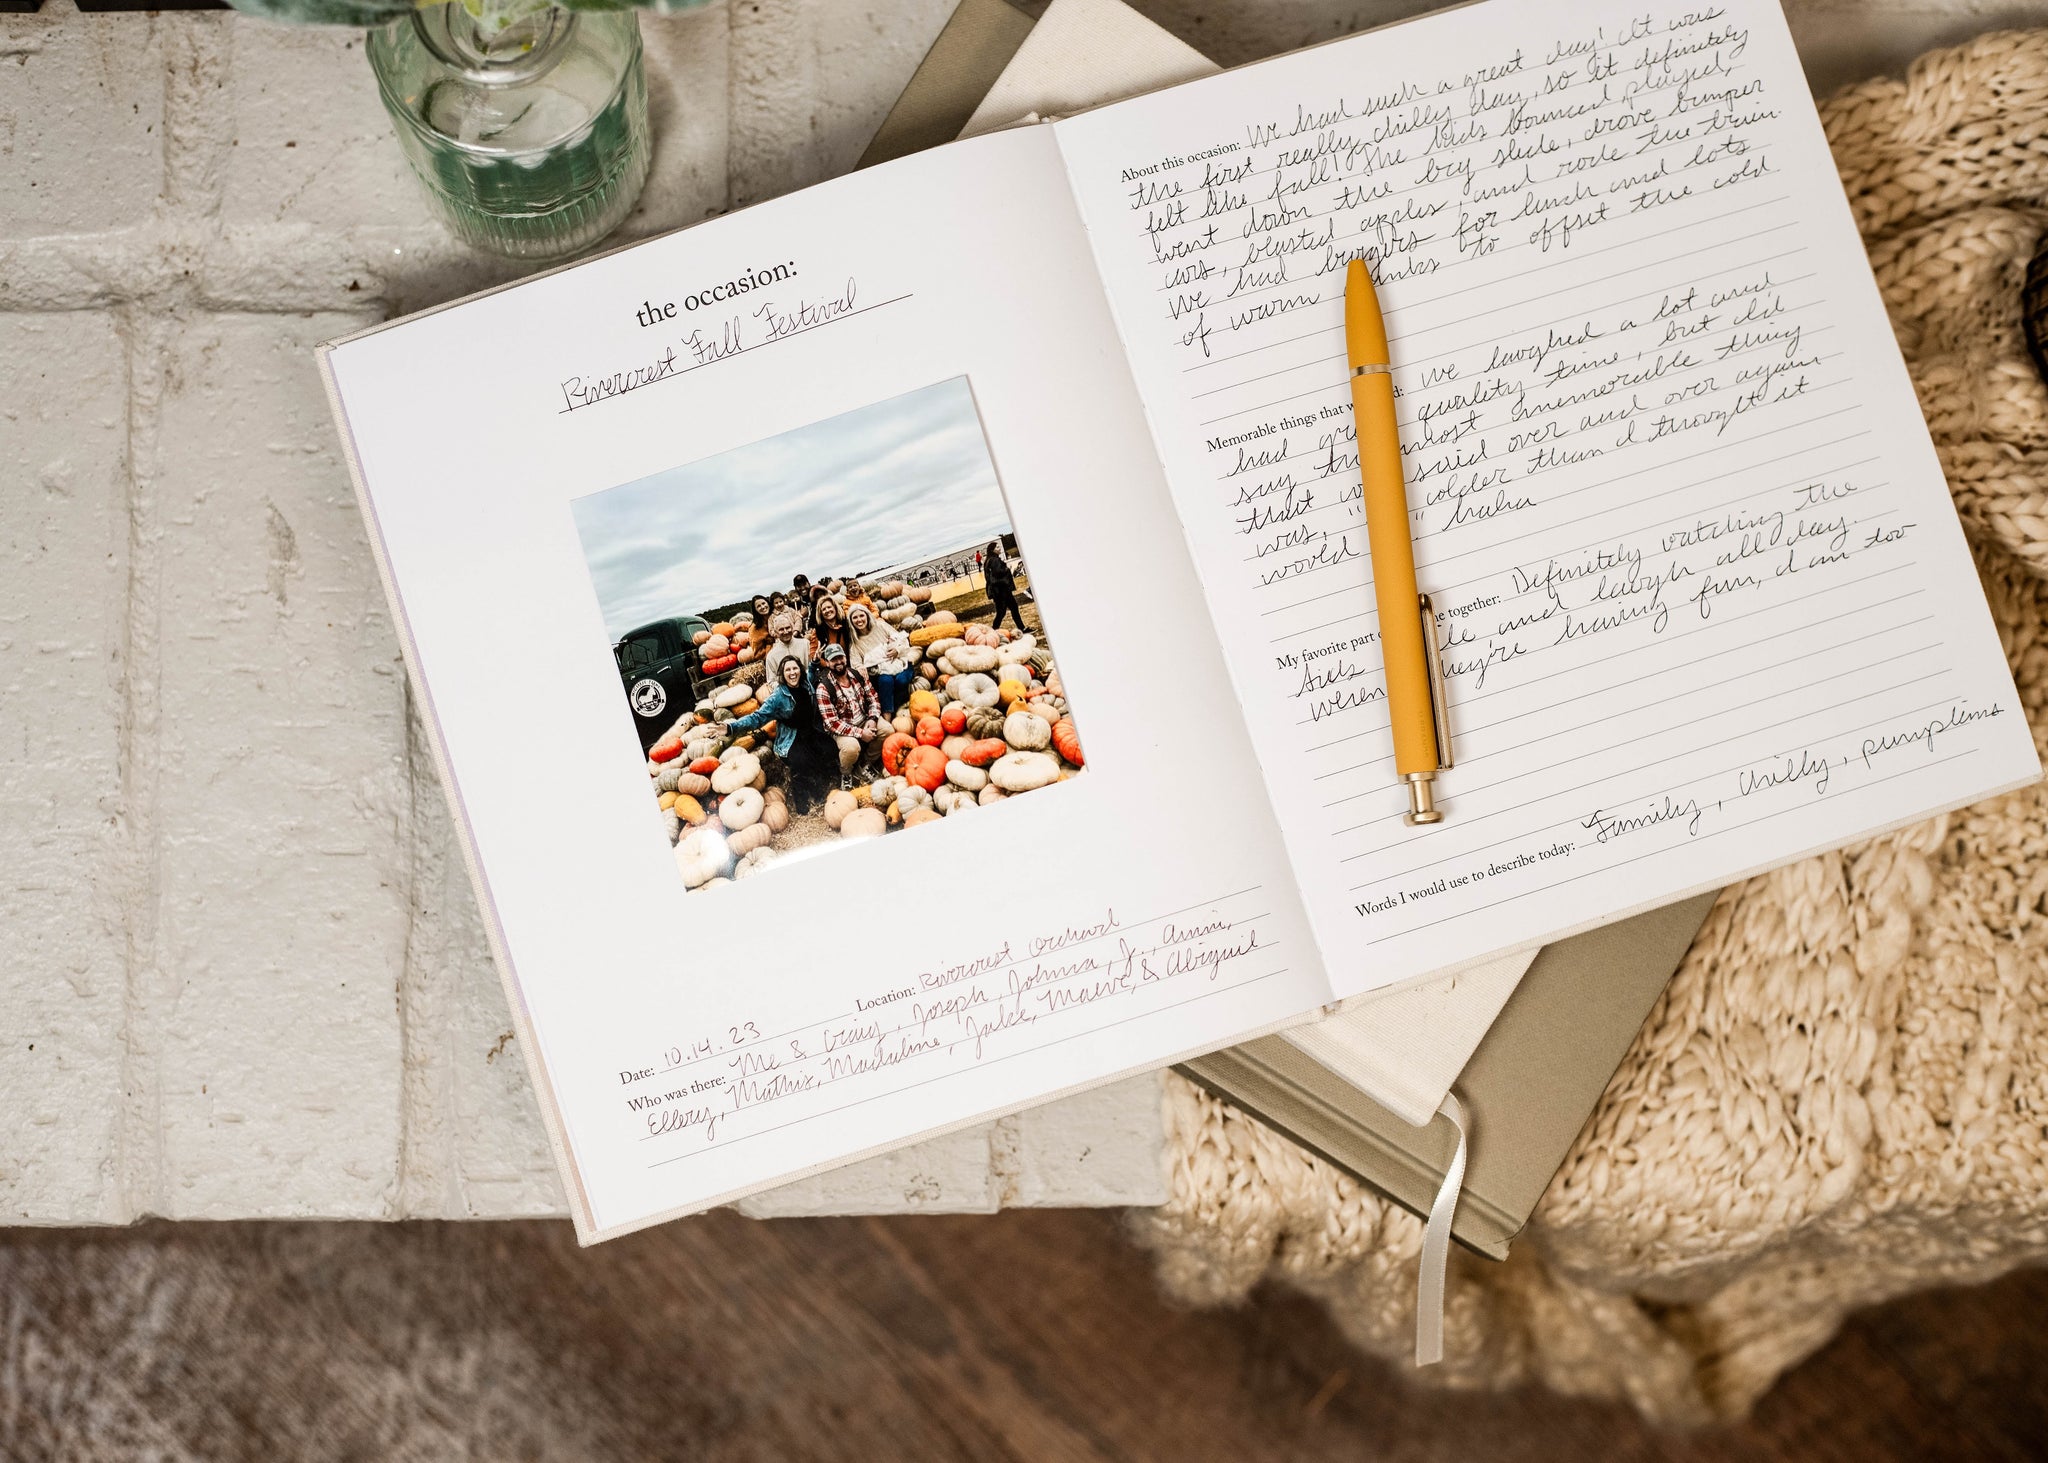 the occasion:
Rivercrest Fall Festival
Location: Rivercrest Orchard
Date: 10.14.23
Who was there: Me & Craig, Joseph, Johnna, Jr., Anni,
Ellery, Mathis, Madaline, Jake, Maeve, & Abigail
About this occasion: We had such a great day! It was
the first really chilly day, so it definitely
felt like fall! The kids bounced, played,
went down the big slide, drove bumper
cars, blasted apples, and rode the train.
We had burgers for lunch and lots
of warm to offset the cold.
Memorable things that we laughed a lot and
had quality time, but I'd
say most memorable thing
that said over and over again
was, " colder than I thought it
would " haha
My favorite part together: Definitely watching the
kids and laugh all day.
When they're having fun, I am too
Words I would use to describe today: Family, Chilly, pumpkins